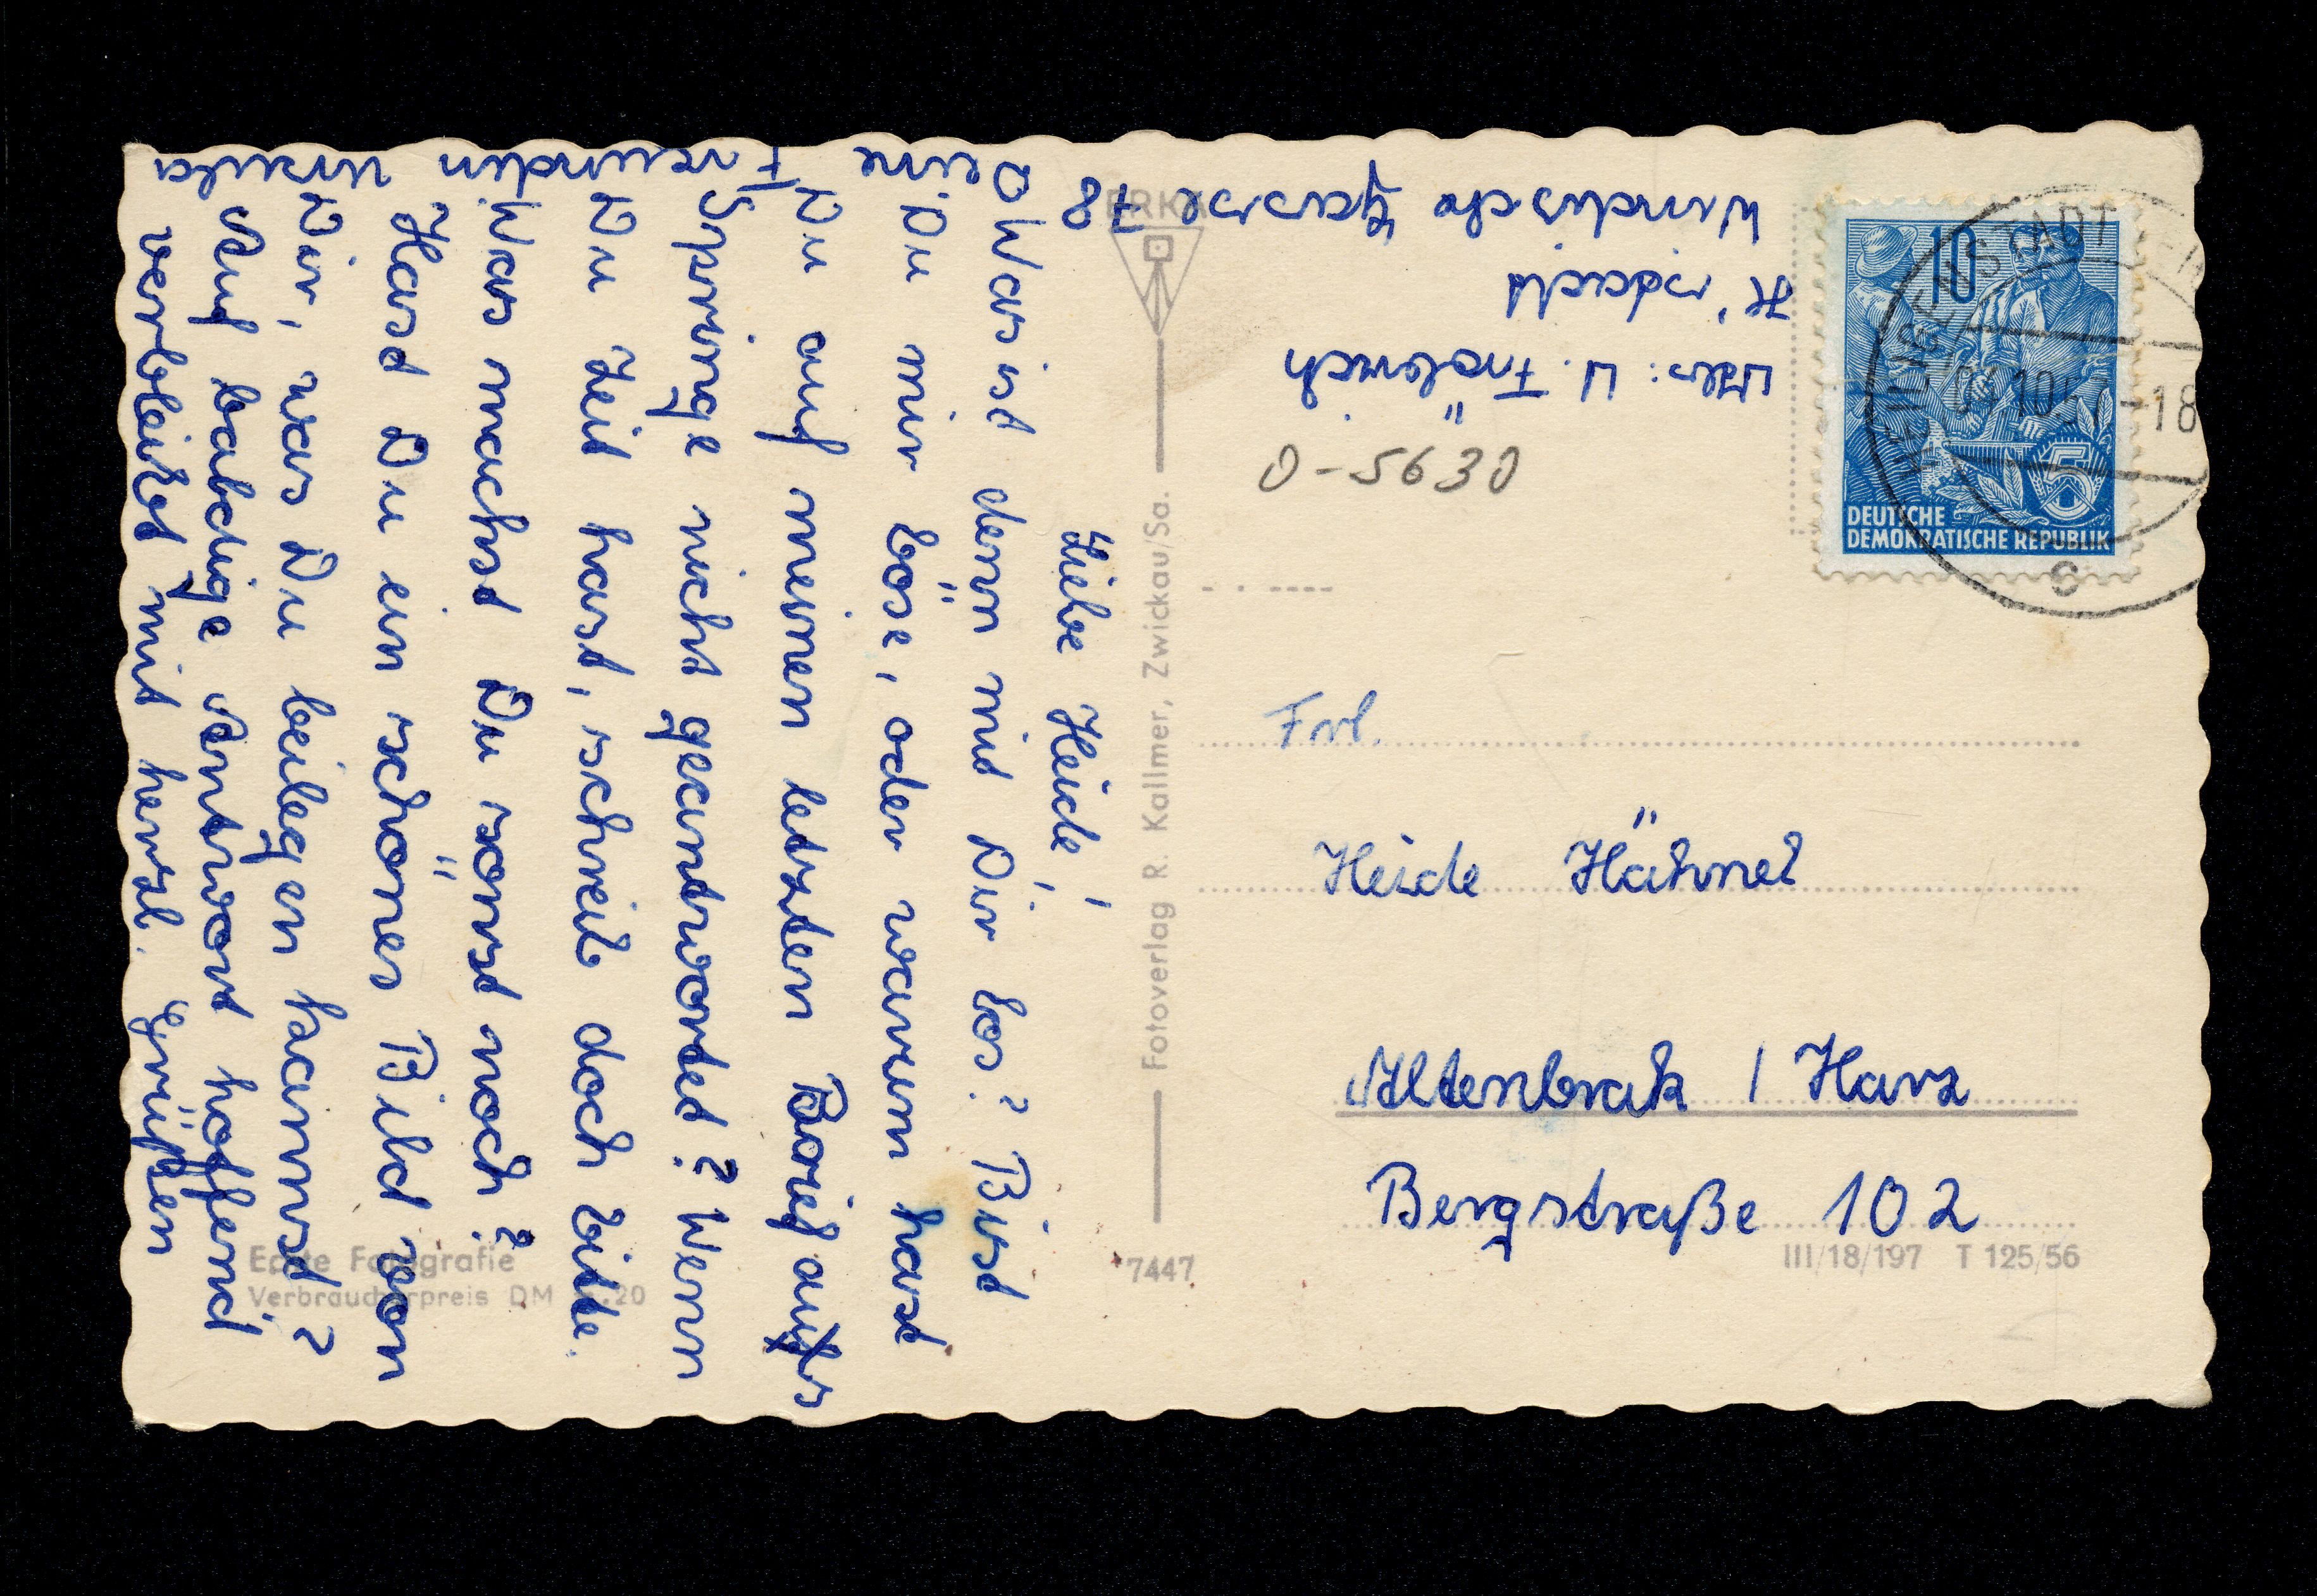 Liebe Heide!
Was ist denn mit Dir los? Bist
Du mir böse, oder warum hast
Du auf meinen letzten Brief aus
Springe nicht geantwortet? Wenn
Du Zeit hast, schreib doch bitte.
Was machst Du sonst noch?
Hast Du ein schönes Bild von
Dir, was Du beilegen kannst?
Auf baldige Antwort hoffend
verbleibt mit herzl. Grüßen
Deine Freundin Ursula
Abs.: U. Fröhlich
H'stadt
Windische Gasse 78
O-5630
ERKA
Fotoverlag R. Kallmer, Zwickau/Sa.
10
DEUTSCHE
DEMOKRATISCHE REPUBLIK
5
HEILIGENSTADT
10.57-18
c
Frl.
Heide Hähnel
Altenbrak / Harz
Bergstraße 102
Echte Fotografie
Verbraucherpreis DM 0.20
7447
III/18/197 T 125/56